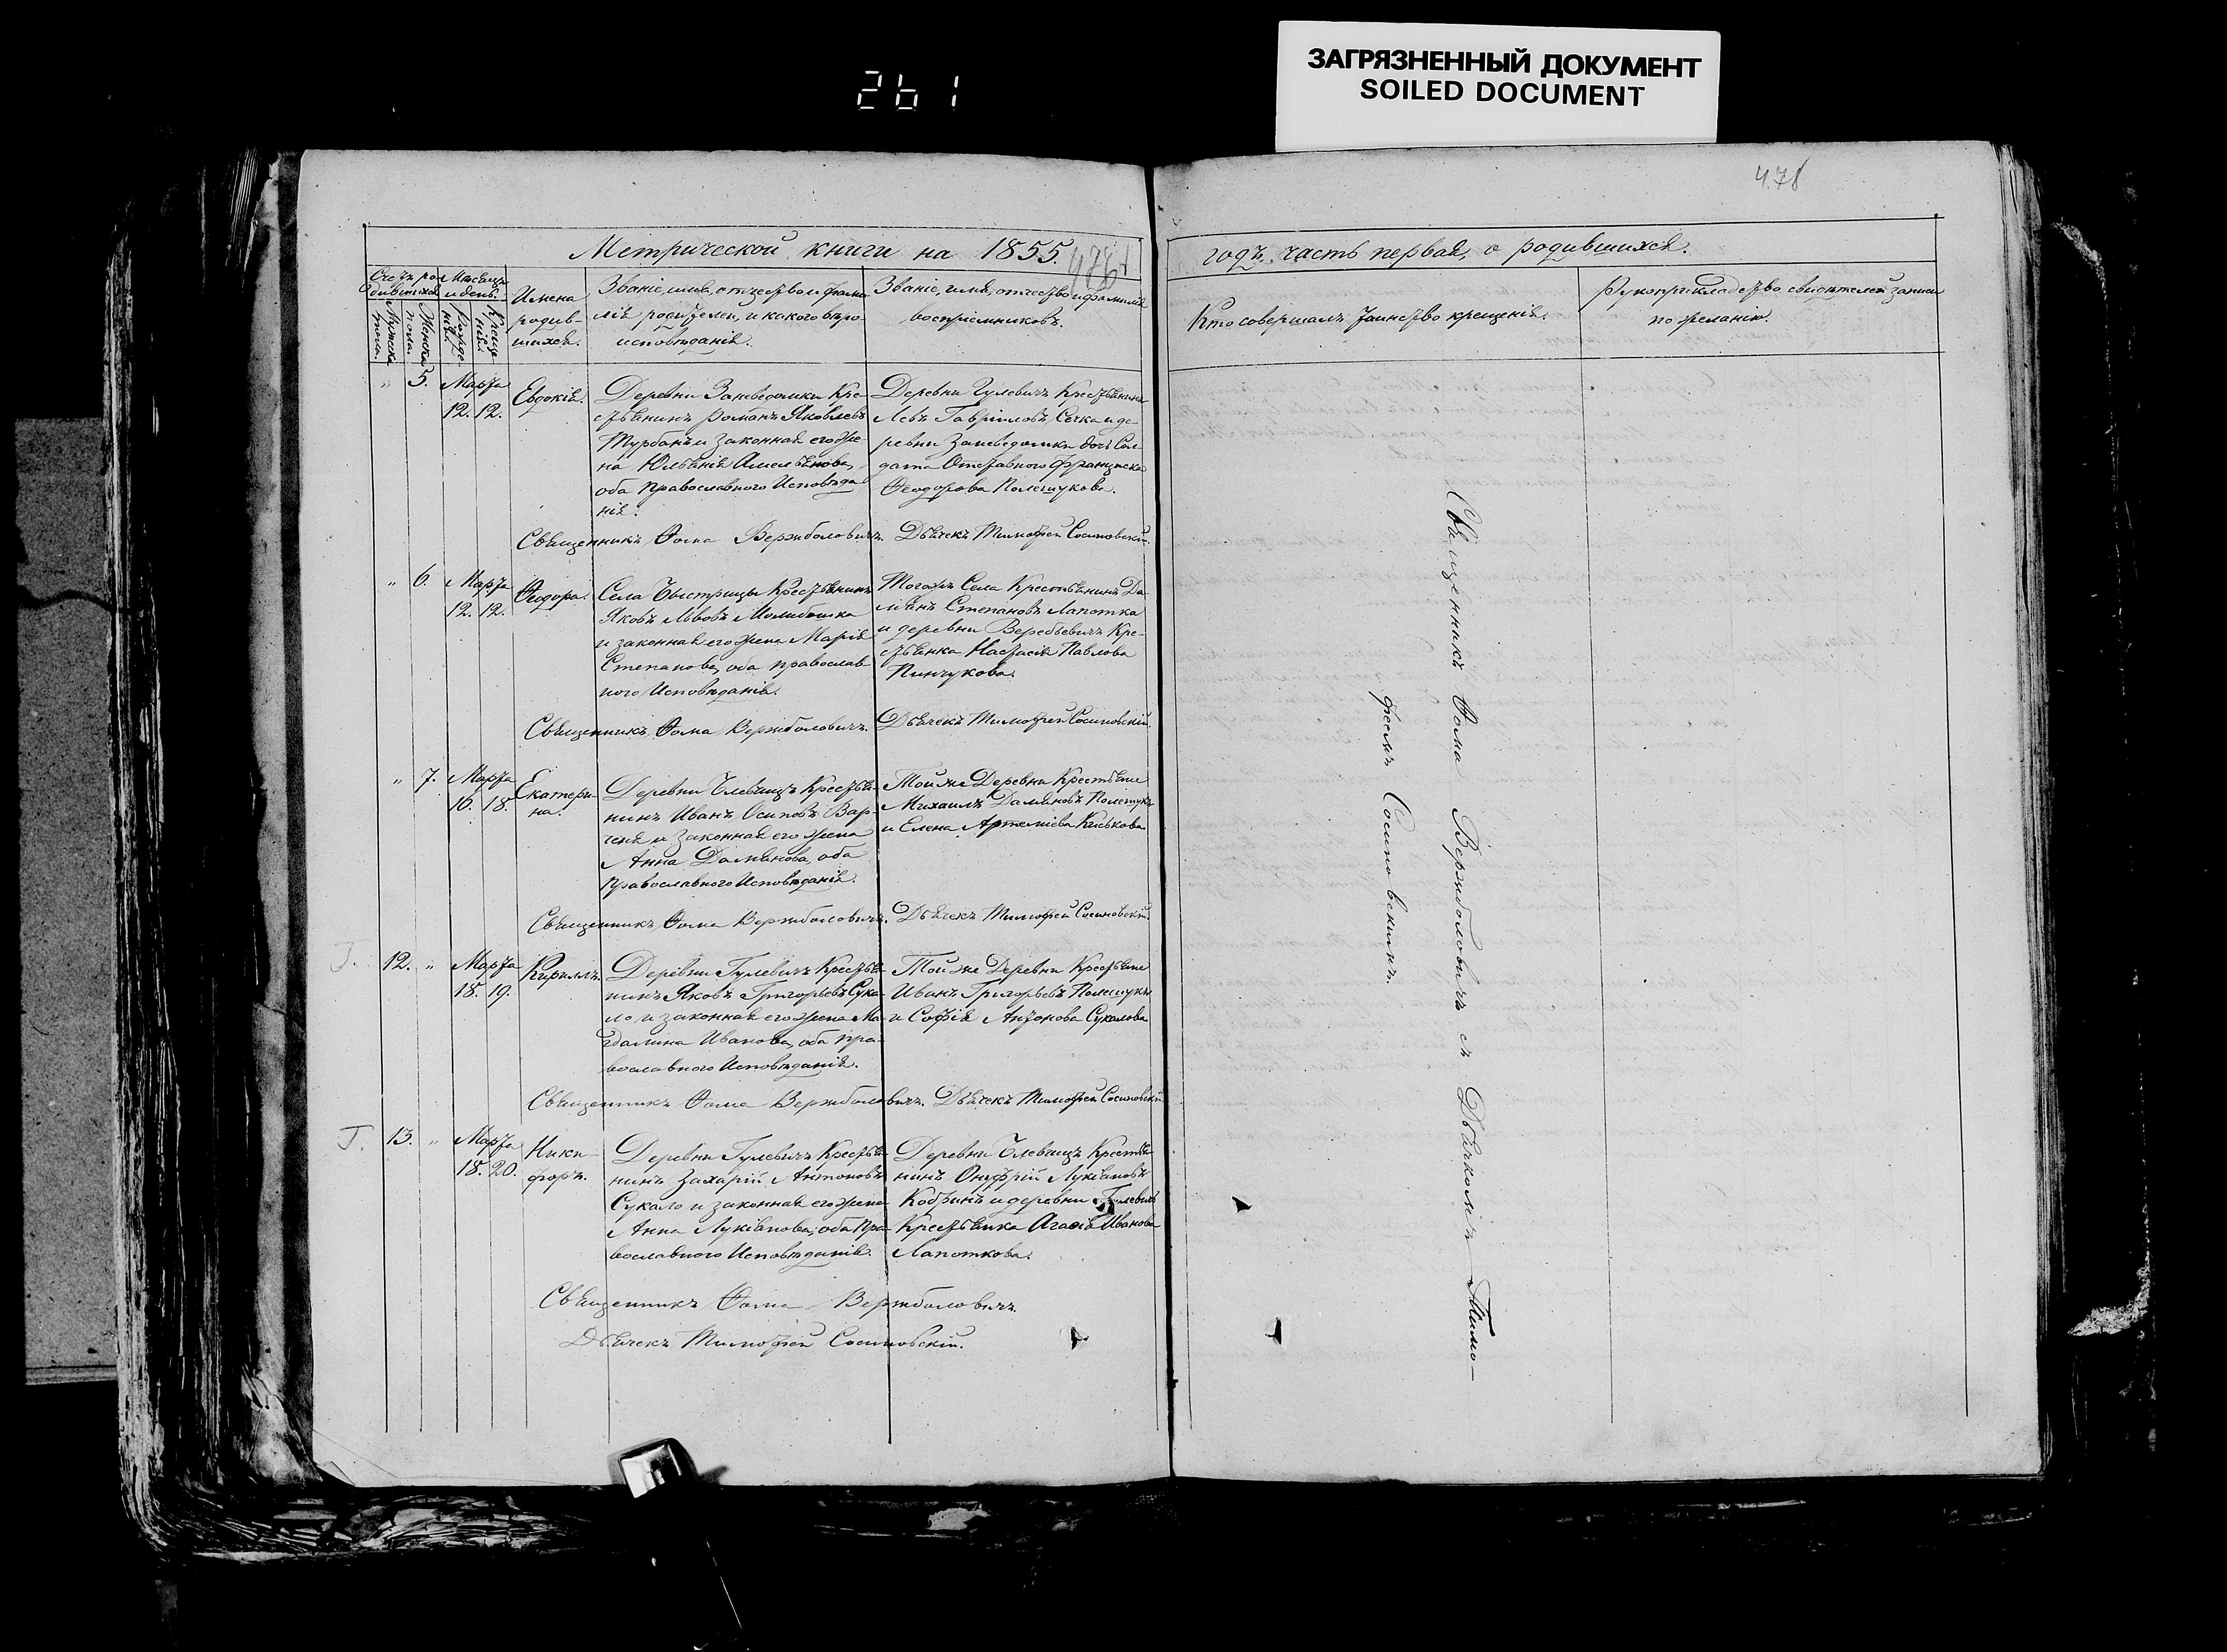 261
ЗАГРЯЗНЕННЫЙ ДОКУМЕНТ
SOILED DOCUMENT
478
Метрической книги на 1855.
годъ, часть первая, о родившихся.
Счетъ родившихся
Мужеска пола.
Женска пола.
Мѣсяцъ и день.
Рожденія.
Крещенія.
Имена
родив-
шихся.
Званіе, имя, отчество и фами-
лія родителей, и какого вѣро-
исповѣданія.
Званіе, имя, отчество и фамилія
воспріемниковъ.
Кто совершалъ таинство крещенія.
Рукоприкладство свидѣтелей записи
по желанію.
" 5. Марта
12. 12.
Евдокія.
Деревни Заневедомки Кре-
стьянинъ Романъ Яковлевъ
Турбанъ и законная его же-
на Юльянія Амельянова,
оба Православнаго Исповѣда
нія.
Деревни Гулевичъ Крестьянинъ
Левъ Гавріиловъ Сечка и де-
ревни Заневедомки дочь Сол-
дата Отставного Францишка
Ѳеодорова Полещукова.
Священникъ Ѳома Вержболовичъ. Дьячекъ Тимофей Сосиновскій.
" 6. Марта
12. 12.
Ѳеодора.
Села Быстрицы Крестьянинъ
Яковъ Львовъ
и законная его жена Марія
Степанова, оба православ
ного Исповѣданія.
Тогожъ Села Крестьянинъ Да-
міянъ Степановъ Лапотка
и деревни Веребьевичъ Кре-
стьянка Настасія Павлова
Пинчукова.
Священникъ Ѳома Вержболовичъ. Дьячекъ Тимофей Сосиновскій.
" 7. Марта
16. 18.
Екатери-
на.
Деревни Члевищъ Крестья-
нинъ Иванъ Осиповъ Вар-
ченя и Законная его жена
Анна Даміянова, оба
Православнаго Исповѣданія.
Той же Деревни Крестьяне
Михаилъ Даміяновъ Полещукъ
и Елена Артеміева Киськова
Священникъ Ѳома Вержболовичъ. Дьячекъ Тимофей Сосиновскій.
12. " Марта
18. 19.
Кириллъ.
Деревни Гулевичъ Крестья-
нинъ Яковъ Григорьевъ Сука-
ло и законная его жена Ма-
гдалина Иванова, оба пра-
вославного Исповѣданія.
Той же Деревни Крестьяне
Иванъ Григорьевъ Полещукъ
и Софія Антонова Сукалова.
Священникъ Ѳома Вержболовичъ. Дьячекъ Тимофей Сосиновскій.
13. " Марта
18. 20.
Ники-
форъ.
Деревни Гулевичъ Крестья-
нинъ Захарій Антоновъ
Сукало и законная его жена
Анна Лукіянова, оба Пра-
вославного Исповѣданія.
Деревни Члевищъ Крестья-
нинъ Онуфрій Лукіяновъ
Кобринъ и деревни Гулевичъ
Крестьянка Агаѳія Иванова
Лапоткова.
Священникъ Ѳома Вержболовичъ
Дьячекъ Тимофей Сосиновскій.
Священникъ Ѳома Вержболовичъ съ Дьячкомъ Тимо-
феемъ Сосиновскимъ.